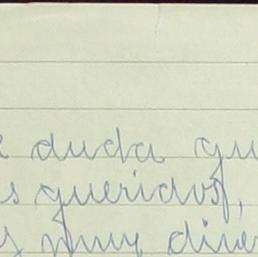 e duda qu
s queridos,
y muy diver